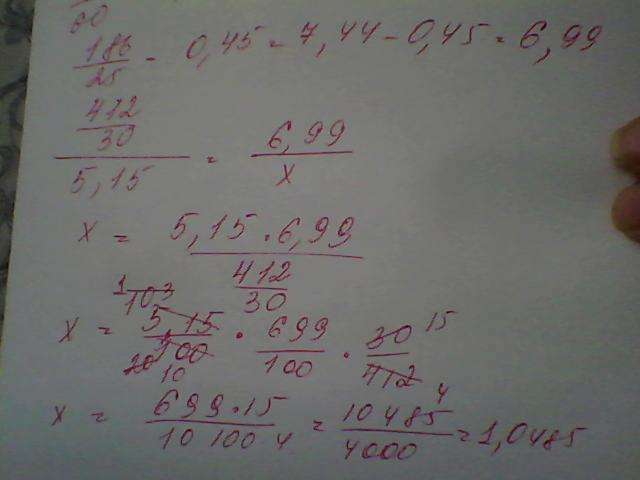 60
186/25 - 0,45 = 7,44 - 0,45 = 6,99
412
30
5,15 = 6,99/x
x = 5,15 · 6,99
412
30
1 103 15
x = 5,15/100 · 699/100 · 30/412
20 10 4
x = 699·15/10 100 4 = 10485/4000 = 1,0485